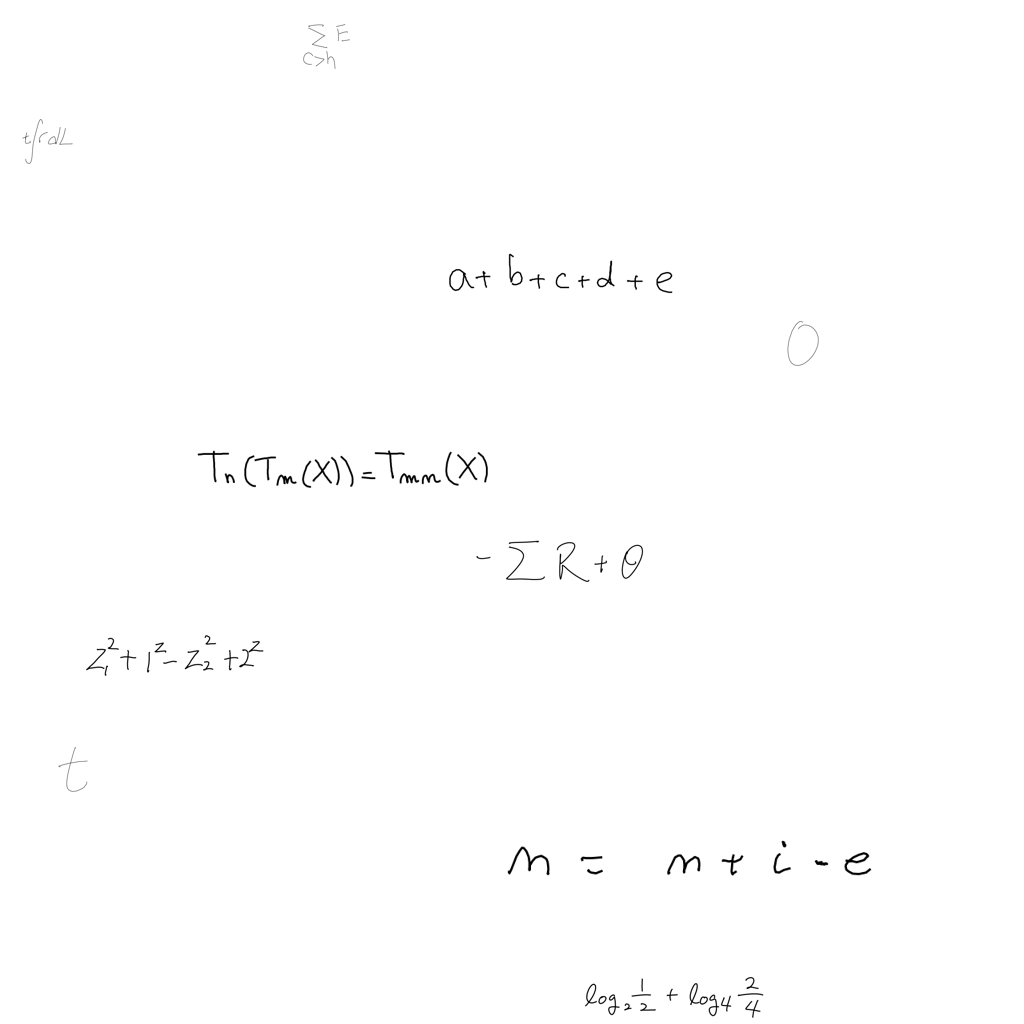 \sum_{c>h} E
t \int r dL
a + b + c + d + e
0
T_n(T_m(X)) = T_{mn}(X)
- \sum R + \theta
z_1^2 + 1^z - z_2^2 + 2^z
t
n = n + i - e
\log_2 \frac{1}{2} + \log_4 \frac{2}{4}